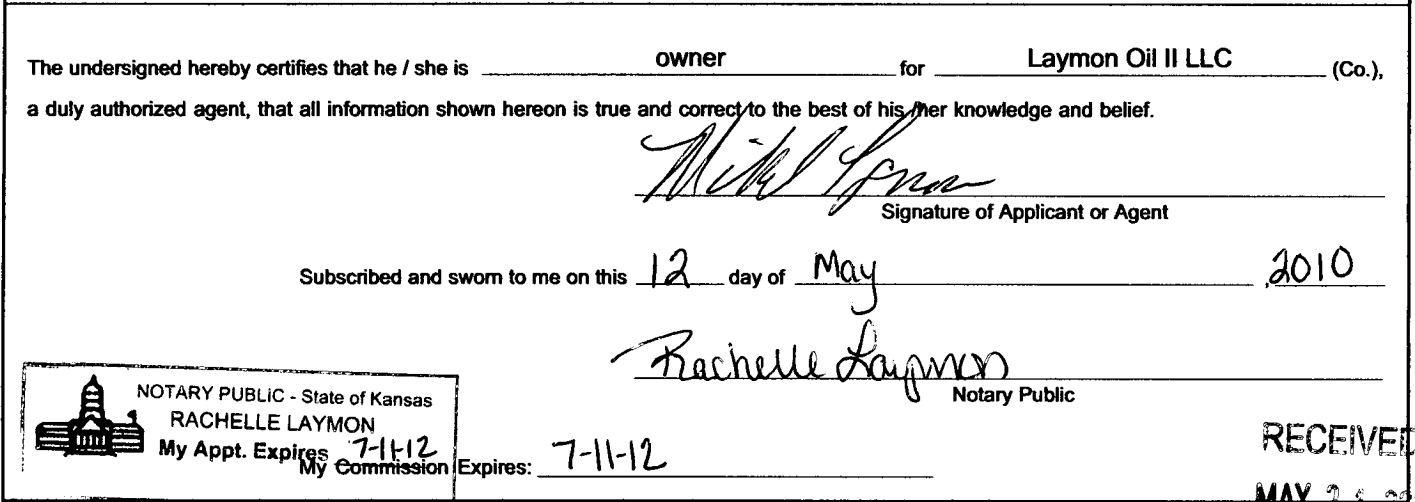 The undersigned hereby certifies that he / she is owner for Laymon Oil II LLC (Co.),
a duly authorized agent, that all information shown hereon is true and correct to the best of his /her knowledge and belief.
Signature of Applicant or Agent
Subscribed and sworn to me on this 12 day of May ,2010
Rachelle Laymon
Notary Public
NOTARY PUBLIC - State of Kansas
RACHELLE LAYMON
My Appt. Expires 7-11-12
My Commission Expires: 7-11-12
RECEIVED
MAY